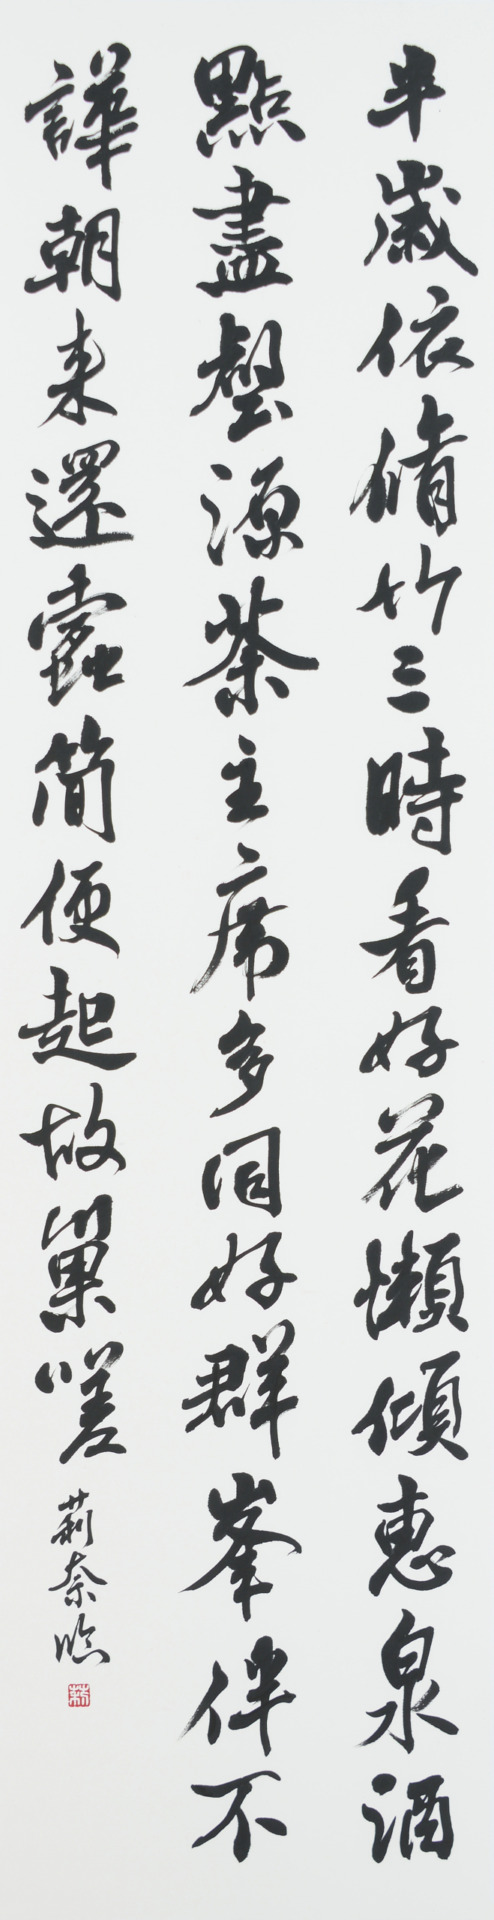 半歳依脩竹三時看好花懶傾惠泉酒
點盡壑源茶主席多同好群峯伴不
譁朝来還蠹簡便起故巢嗟
莉奈臨